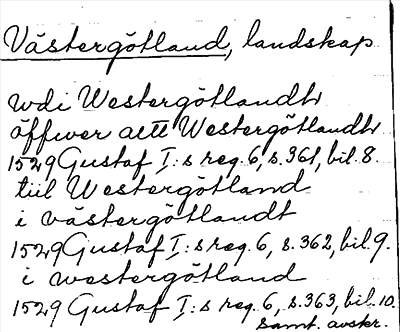 Västergötland, landskap
udi Westergötlandh
öffwer altt Westergötlandh
1529 Gustaf I:s reg. 6, s. 361, bil. 8.
tiil Westergötland
i västergötlandt
1529 Gustaf I:s reg. 6, s. 362, bil. 9.
i westergötland
1529 Gustaf I:s reg. 6, s. 363, bil. 10.
samt. avskr.